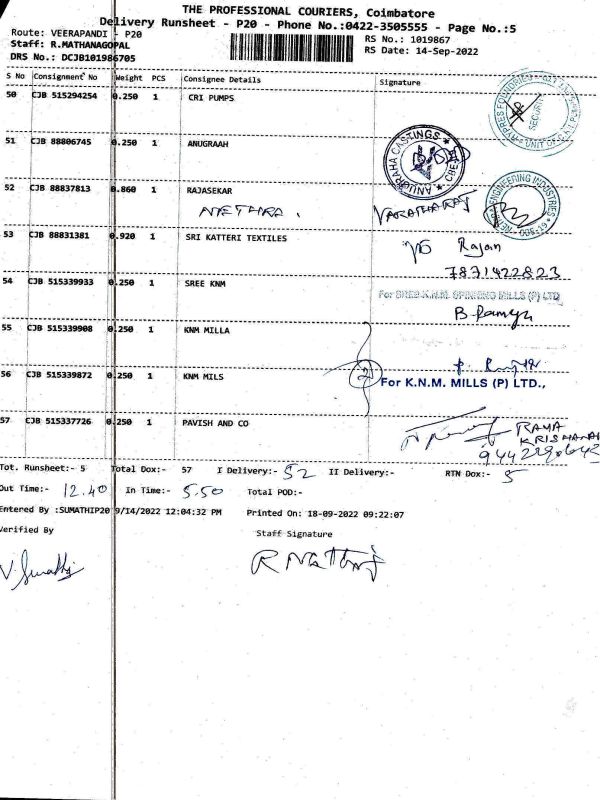 THE PROFESSIONAL COURIERS, Coimbatore
Delivery Runsheet - P20 - Phone No.:0422-3505555 - Page No.:5
Route: VEERAPANDI - P20
RS No.: 1019867
Staff: R.MATHANAGOPAL
RS Date: 14-Sep-2022
DRS No.: DCJB101986705
S No Consignment No Weight PCS Consignee Details Signature
50 CJB 515294254 0.250 1 CRI PUMPS
SECURITY
51 CJB 88806745 0.250 1 ANUGRAAH
ANUGRAHA CASTINGS
52 CJB 88837813 0.860 1 RAJASEKAR
NETHRA. VARATHARAJ
ENGINEERING INDUSTRIES
53 CJB 88831381 0.920 1 SRI KATTERI TEXTILES
Rajan
7871422823
54 CJB 515339933 0.250 1 SREE KNM
For SREE K.N.M. SPINNING MILLS (P) LTD
B. Ramya
55 CJB 515339908 0.250 1 KNM MILLA
56 CJB 515339872 0.250 1 KNM MILS
For K.N.M. MILLS (P) LTD.,
57 CJB 515337726 0.250 1 PAVISH AND CO
RAMA
KRISHANAN
Tot. Runsheet:- 5 Total Dox:- 57 I Delivery:- 52 II Delivery:- RTN Dox:- 5
Out Time:- 12.40 In Time:- 5.50 Total POD:-
Entered By :SUMATHIP20 9/14/2022 12:04:32 PM Printed On: 18-09-2022 09:22:07
Verified By Staff Signature
V. Sumathi